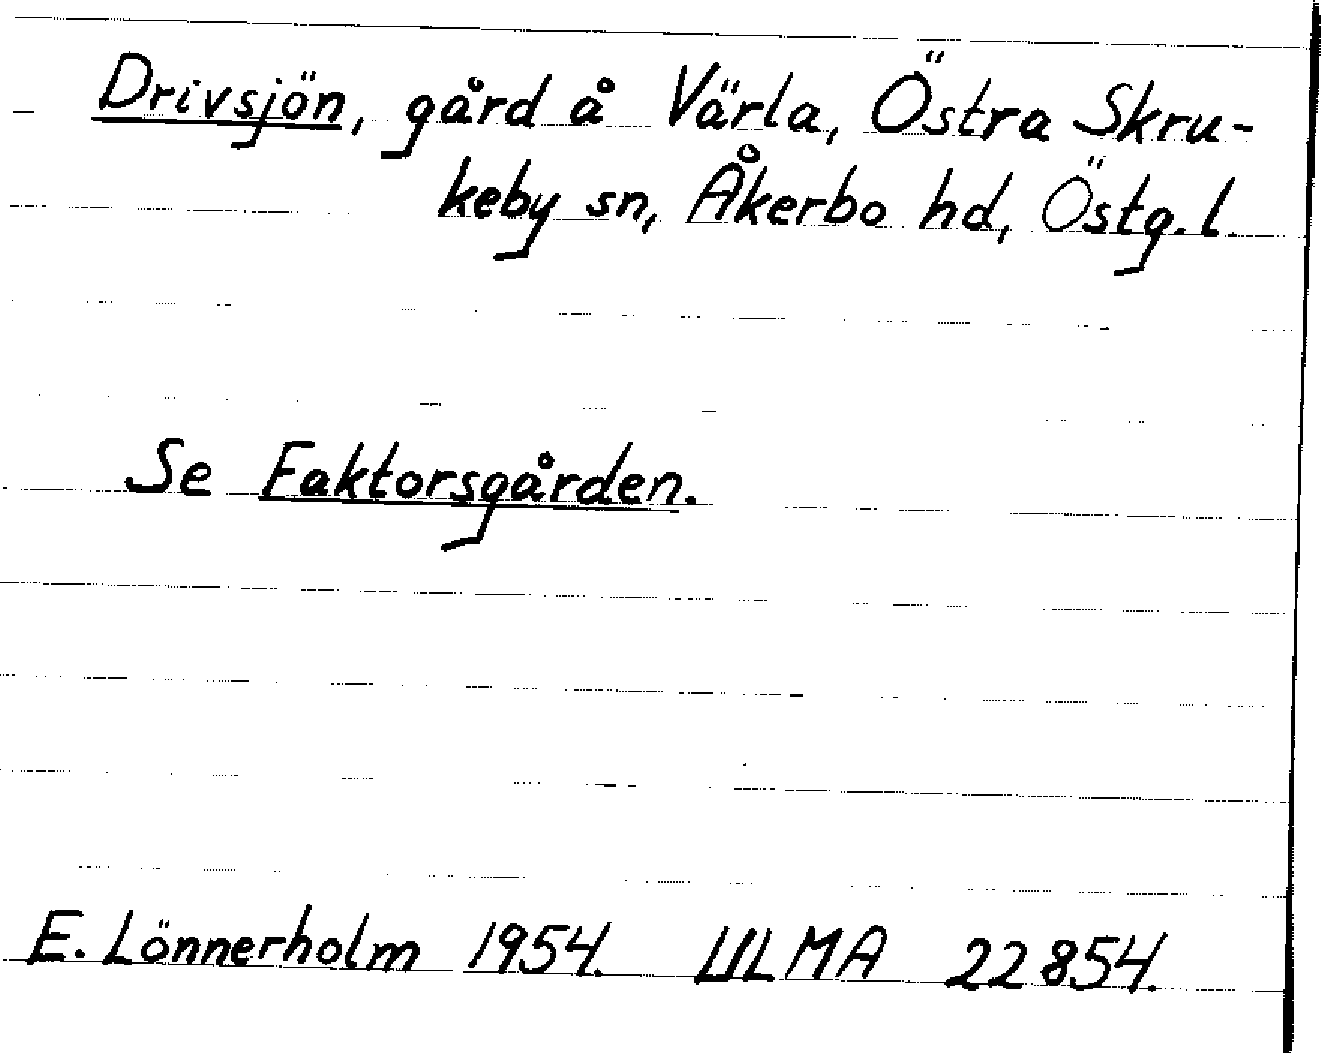 Drivsjön, gård å Värla, Östra Skru-
keby sn, Åkerbo hd, Östg. l.
Se Faktorsgården.
E. Lönnerholm 1954. ULMA 22854.